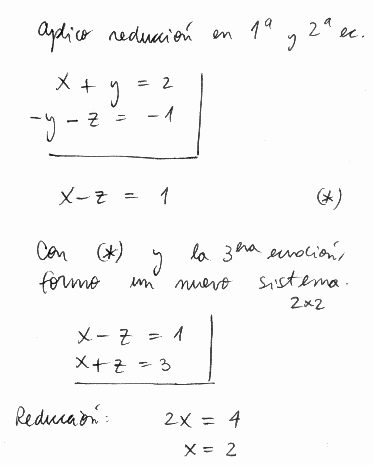 Aplico reducción en 1ª y 2ª ec.
x + y = 2
-y - z = -1
x - z = 1 (*)
Con (*) y la 3era ecuación,
formo un nuevo sistema.
2x2
x - z = 1
x + z = 3
Reducción: 2x = 4
x = 2